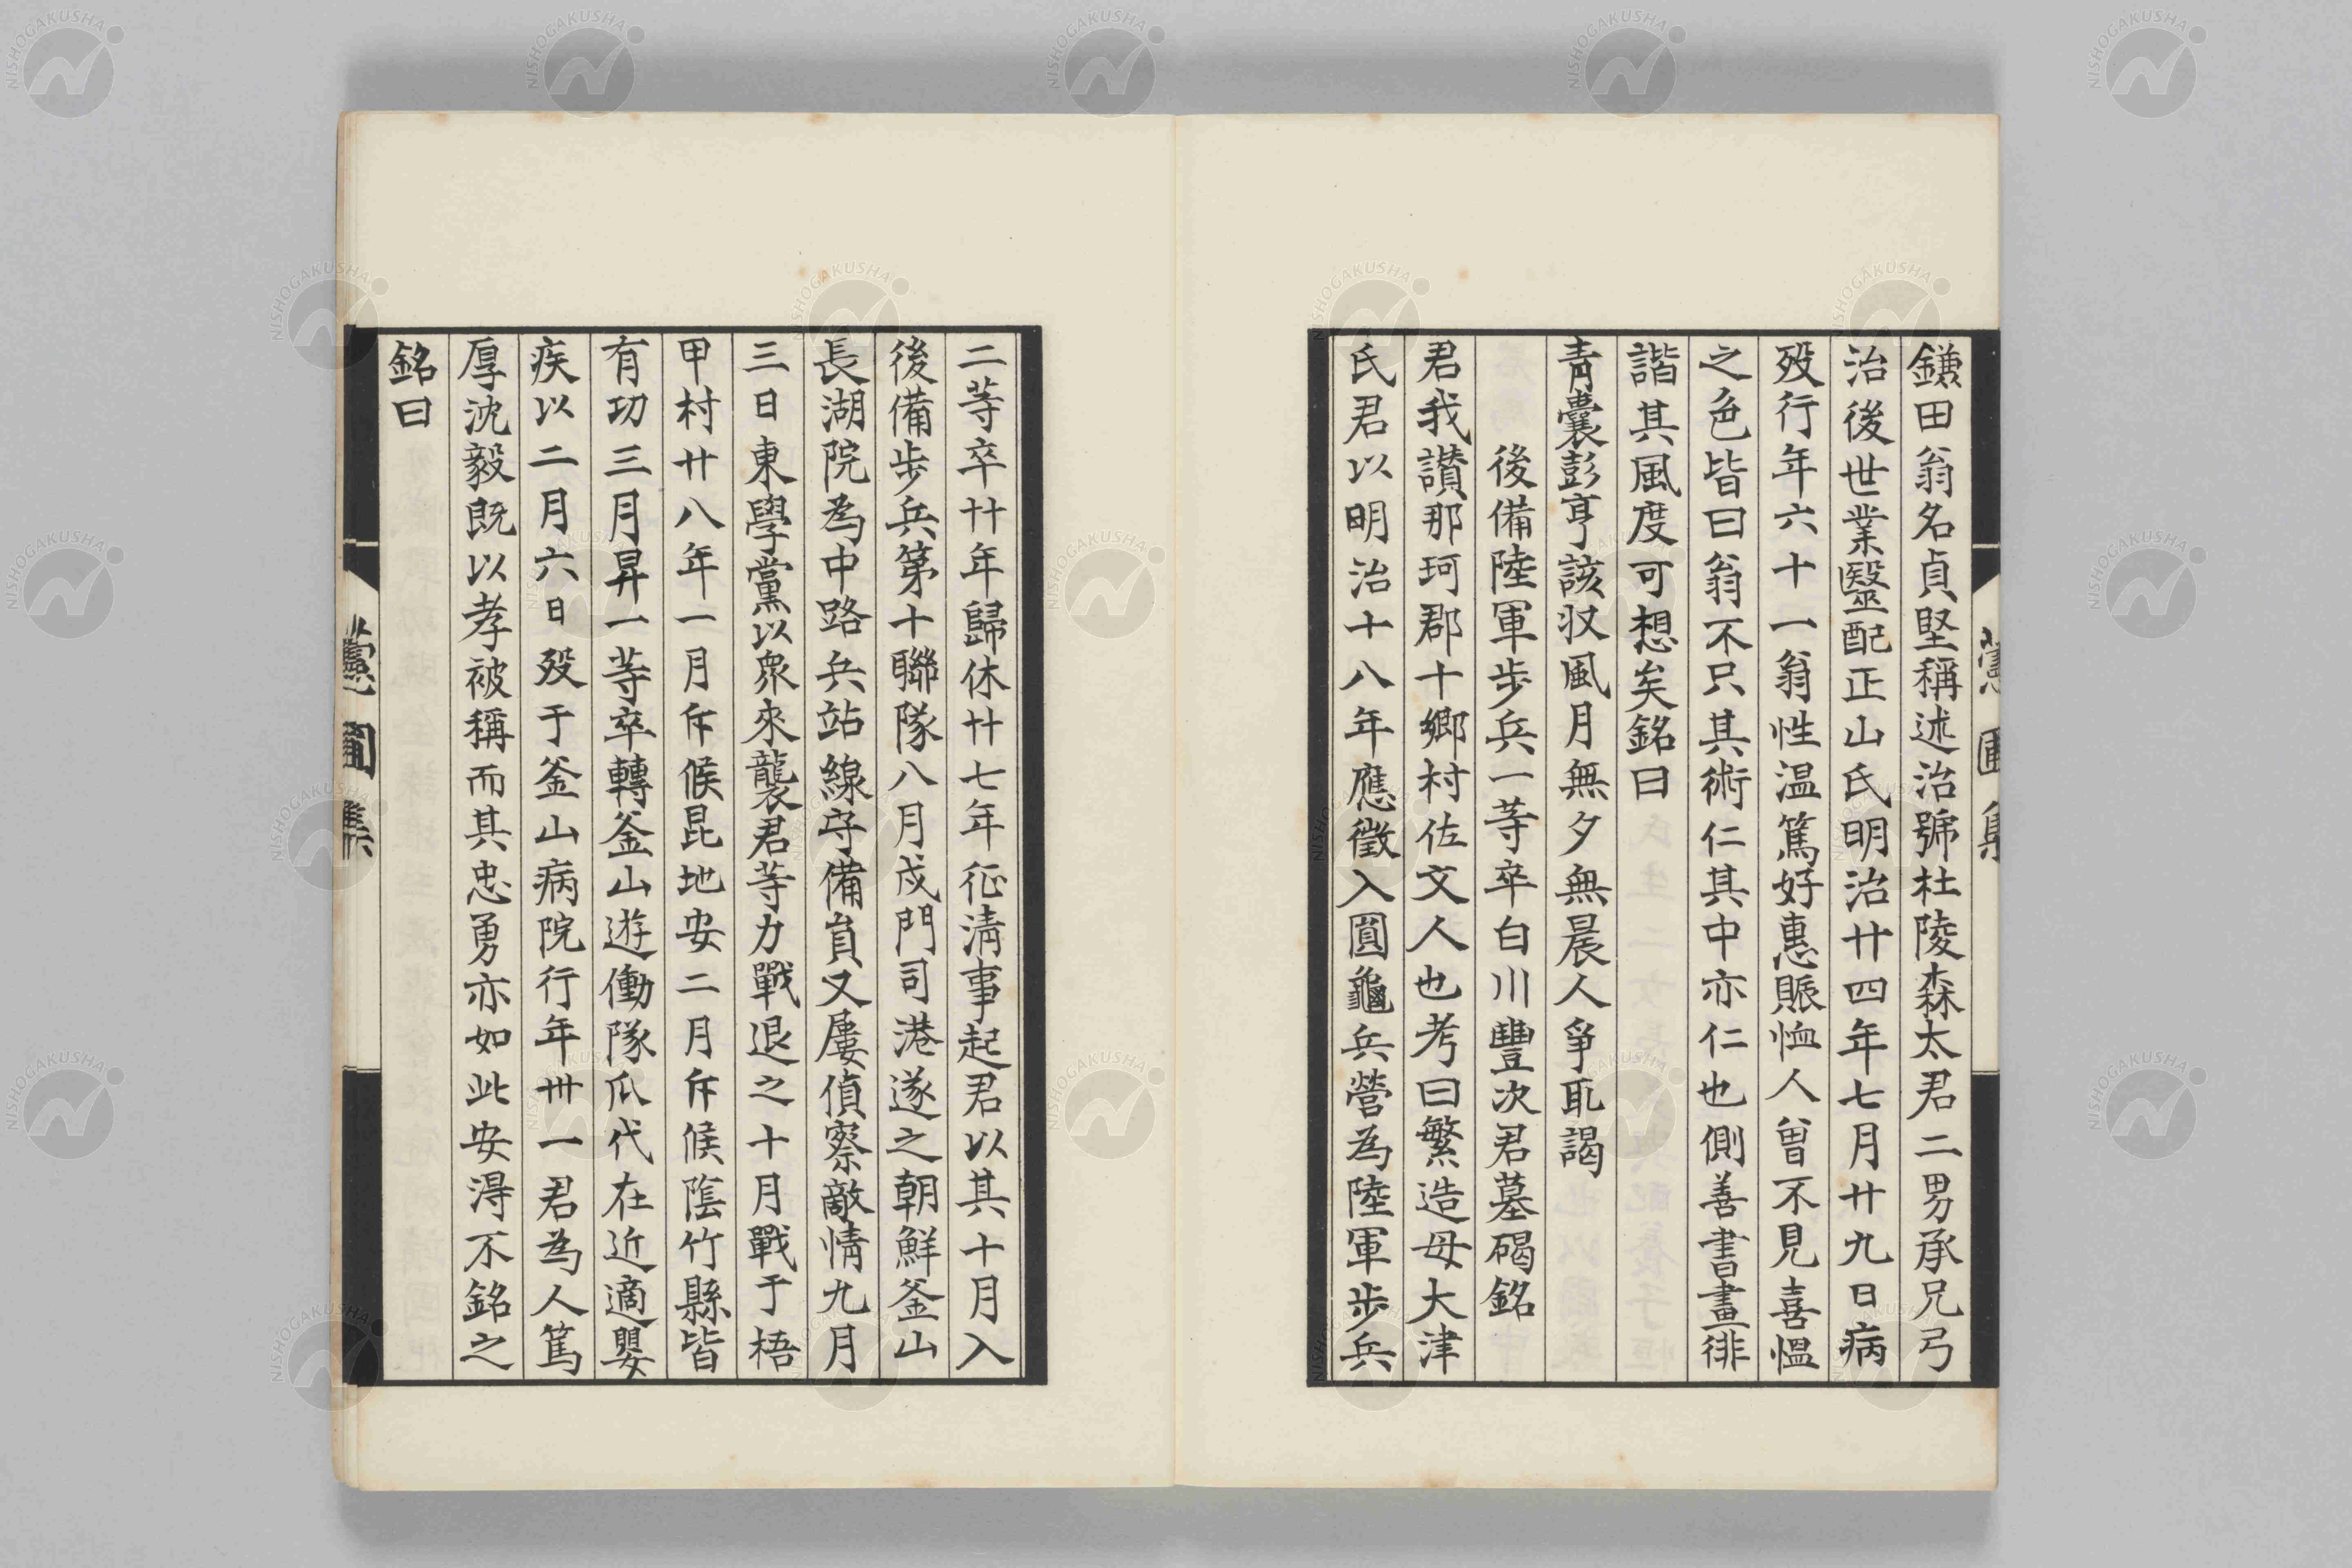 鎌田翁名貞堅稱述治號杜陵森太君二男承兄弓
治後世業醫配正山氏明治廿四年七月廿九日病
歿行年六十一翁性温篤好惠賑恤人曾不見喜慍
之色皆曰翁不只其術仁其中亦仁也側善書畫徘
諧其風度可想矣銘曰
青囊彭亨該収風月無夕無晨人爭耴謁
後備陸軍步兵一等卒白川豐次君墓碣銘
君我讃那珂郡十郷村佐文人也考曰繁造母大津
氏君以明治十八年應徴入圓龜兵營為陸軍步兵
二等卒廿年歸休廿七年征淸事起君以其十月入
後備步兵第十聯隊八月戍門司港遂之朝鮮釜山
長湖院為中路兵站線守備員又屢偵察敵情九月
三日東學黨以衆來襲君等力戰退之十月戰于梧
甲村廿八年一月斥候昆地安二月斥候陰竹縣皆
有功三月昇一等卒轉釜山遊働隊瓜代在近適嬰
疾以二月六日歿于釜山病院行年卅一君為人篤
厚沈毅既以孝被稱而其忠勇亦如此安得不銘之
銘曰
NISHOGAKUSHA